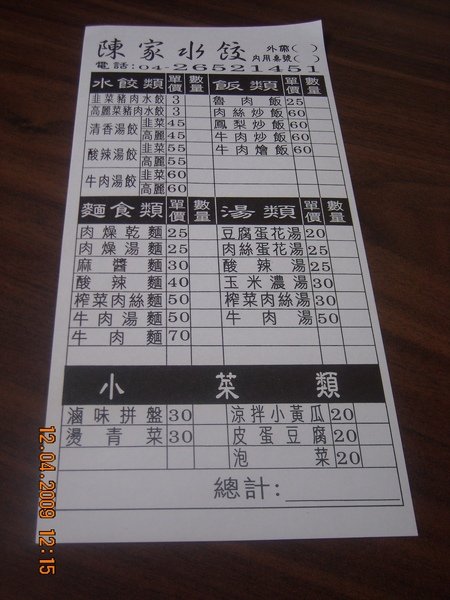 陳家水餃 外帶( )
內用桌號( )
電話:04-26521451
水餃類 單價 數量 飯類 單價 數量
韭菜豬肉水餃 3 魯肉飯 25
高麗菜豬肉水餃 3 肉絲炒飯 60
清香湯餃 韭菜 45 鳳梨炒飯 60
高麗 45 牛肉炒飯 60
酸辣湯餃 韭菜 55 牛肉燴飯 60
高麗 55
牛肉湯餃 韭菜 60
高麗 60
麵食類 單價 數量 湯類 單價 數量
肉燥乾麵 25 豆腐蛋花湯 20
肉燥湯麵 25 肉絲蛋花湯 25
麻醬麵 30 酸辣湯 25
酸辣麵 40 玉米濃湯 30
榨菜肉絲麵 50 榨菜肉絲湯 30
牛肉湯麵 50 牛肉湯 50
牛肉麵 70
小菜類
滷味拼盤 30 涼拌小黃瓜 20
燙青菜 30 皮蛋豆腐 20
泡菜 20
總計:
12.04.2009 12:15